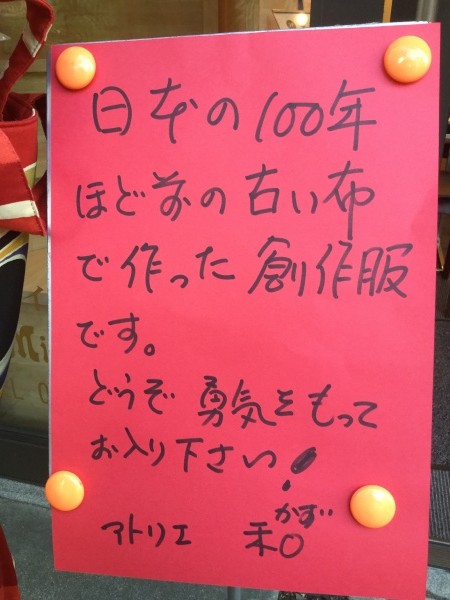 日本の100年
ほど前の古い布
で作った創作服
です。
どうぞ勇気をもって
お入り下さい!
かず
アトリエ 和